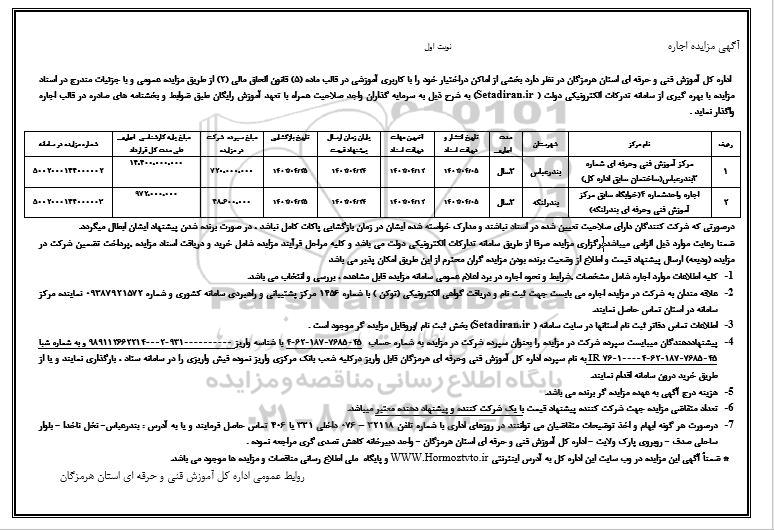 آگهی مزایده اجاره
نوبت اول
اداره کل آموزش فنی و حرفه ای استان هرمزگان در نظر دارد بخشی از اماکن دراختیار خود را با کاربری آموزشی در قالب ماده (۵) قانون الحاق مالی (۲) از طریق مزایده عمومی و با جزئیات مندرج در اسناد
مزایده با بهره گیری از سامانه تدرکات الکترونیکی دولت ( Setadiran.ir) به شرح ذیل به سرمایه گذاران واجد صلاحیت همراه با تعهد آموزش رایگان طبق ضوابط و بخشنامه های صادره در قالب اجاره
واگذار نماید .
ردیف | نام مرکز | شهرستان | مدت اجاره | تاریخ انتشار و دریافت اسناد | آخرین مهلت دریافت اسناد | پایان زمان ارسال پیشنهاد قیمت | تاریخ بازگشایی | مبلغ سپرده شرکت در مزایده | مبلغ پایه کارشناسی اجاره طی مدت کل قرارداد | شماره مزایده در سامانه
۱ | مرکز آموزش فنی وحرفه ای شماره ۳بندرعباس(ساختمان سابق اداره کل) | بندرعباس | ۳سال | ۱۴۰۲/۰۶/۰۵ | ۱۴۰۲/۰۶/۱۲ | ۱۴۰۲/۰۶/۲۴ | ۱۴۰۲/۰۶/۲۵ | ۷۲۰.۰۰۰.۰۰۰ | ۱۴.۴۰۰.۰۰۰.۰۰۰
۲ | اجاره واحدشماره ۴(خوابگاه سابق مرکز آموزش فنی وحرفه ای بندرلنگه) | بندرلنگه | ۳سال | ۱۴۰۲/۰۶/۰۵ | ۱۴۰۲/۰۶/۱۲ | ۱۴۰۲/۰۶/۲۴ | ۱۴۰۲/۰۶/۲۵ | ۴۸.۶۰۰.۰۰۰ | ۹۷۲.۰۰۰.۰۰۰
درصورتی که شرکت کنندگان دارای صلاحیت تعیین شده در اسناد نباشند و مدارک خواسته شده ایشان در زمان بازگشایی پاکات کامل نباشد . در صورت برنده شدن پیشنهاد ایشان ابطال میگردد.
ضمنا رعایت موارد ذیل الزامی میباشد:برگزاری مزایده صرفا از طریق سامانه تدارکات الکترونیکی دولت می باشد و کلیه مراحل فرآیند مزایده شامل خرید و دریافت اسناد مزایده ,پرداخت تضمین شرکت در
مزایده (ودیعه) ارسال پیشنهاد قیمت و اطلاع از وضعیت برنده بودن مزایده گران محترم از این طریق امکان پذیر می باشد
1- کلیه اطلاعات موارد اجاره شامل مشخصات ,شرایط و نحوه اجاره در برد اعلام عمومی سامانه مزایده قابل مشاهده . بررسی و انتخاب می باشد.
2- علاقه مندان به شرکت در مزایده اجاره می بایست جهت ثبت نام و دریافت گواهی الکترونیکی (توکن ) با شماره ۱۴۵۶ مرکز پشتیبانی و راهبردی سامانه کشوری و شماره ۰۹۳۸۷۹۲۱۵۷۲ نماینده مرکز
سامانه در استان تماس حاصل نمایند.
3- اطلاعات تماس دفاتر ثبت نام استانها در سایت سامانه ( Setadiran.ir) بخش ثبت نام /پروفایل مزایده گر موجود است .
4- پیشنهاددهندگان میبایست سپرده شرکت در مزایده را بعنوان سپرده شرکت در مزایده به شماره حساب
به نام سپرده اداره کل آموزش فنی وحرفه ای هرمزگان قابل واریز درکلیه شعب بانک مرکزی واریز نموده فیش واریزی را در سامانه ستاد . بارگذاری نمایند و یا از
طریق خرید درون سامانه اقدام نمایند.
5- هزینه درج آگهی به عهده مزایده گر برنده می باشد.
6- تعداد متقاضی مزایده جهت شرکت کننده پیشنهاد قیمت با یک شرکت کننده و پیشنهاد دهنده معتبر میباشد.
7- درصورت هر گونه ابهام و اخذ توضیحات متقاضیان می توانند در روزهای اداری با شماره تلفن ۳۲۱۱۸ - ۰۷۶ داخلی ۳۳۱ یا ۴۰۶ تماس حاصل فرمایند و یا به آدرس : بندرعباس- نخل ناخدا - بلوار
ساحلی صدف - روبروی پارک ولایت - اداره کل آموزش فنی و حرفه ای استان هرمزگان - واحد دبیرخانه کاهش تصدی گری مراجعه نموده .
* ضمناً آگهی این مزایده در وب سایت این اداره کل به آدرس اینترنتی WWW.Hormoztvto.ir و پایگاه ملی اطلاع رسانی مناقصات و مزایده ها موجود می باشد.
روابط عمومی اداره کل آموزش فنی و حرفه ای استان هرمزگان
ParsNamadData
پایگاه اطلاع رسانی مناقصه و مزایده